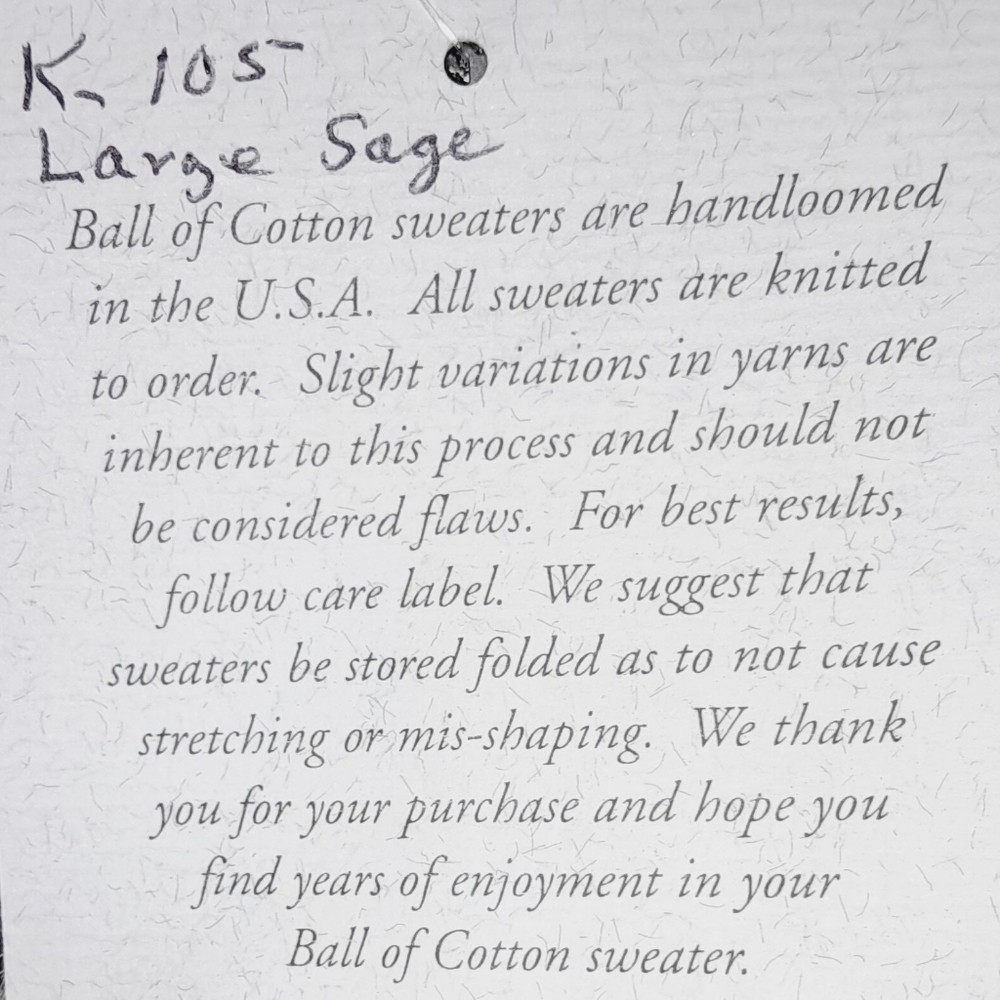 K-105
Large Sage
Ball of Cotton sweaters are handloomed
in the U.S.A. All sweaters are knitted
to order. Slight variations in yarns are
inherent to this process and should not
be considered flaws. For best results,
follow care label. We suggest that
sweaters be stored folded as to not cause
stretching or mis-shaping. We thank
you for your purchase and hope you
find years of enjoyment in your
Ball of Cotton sweater.